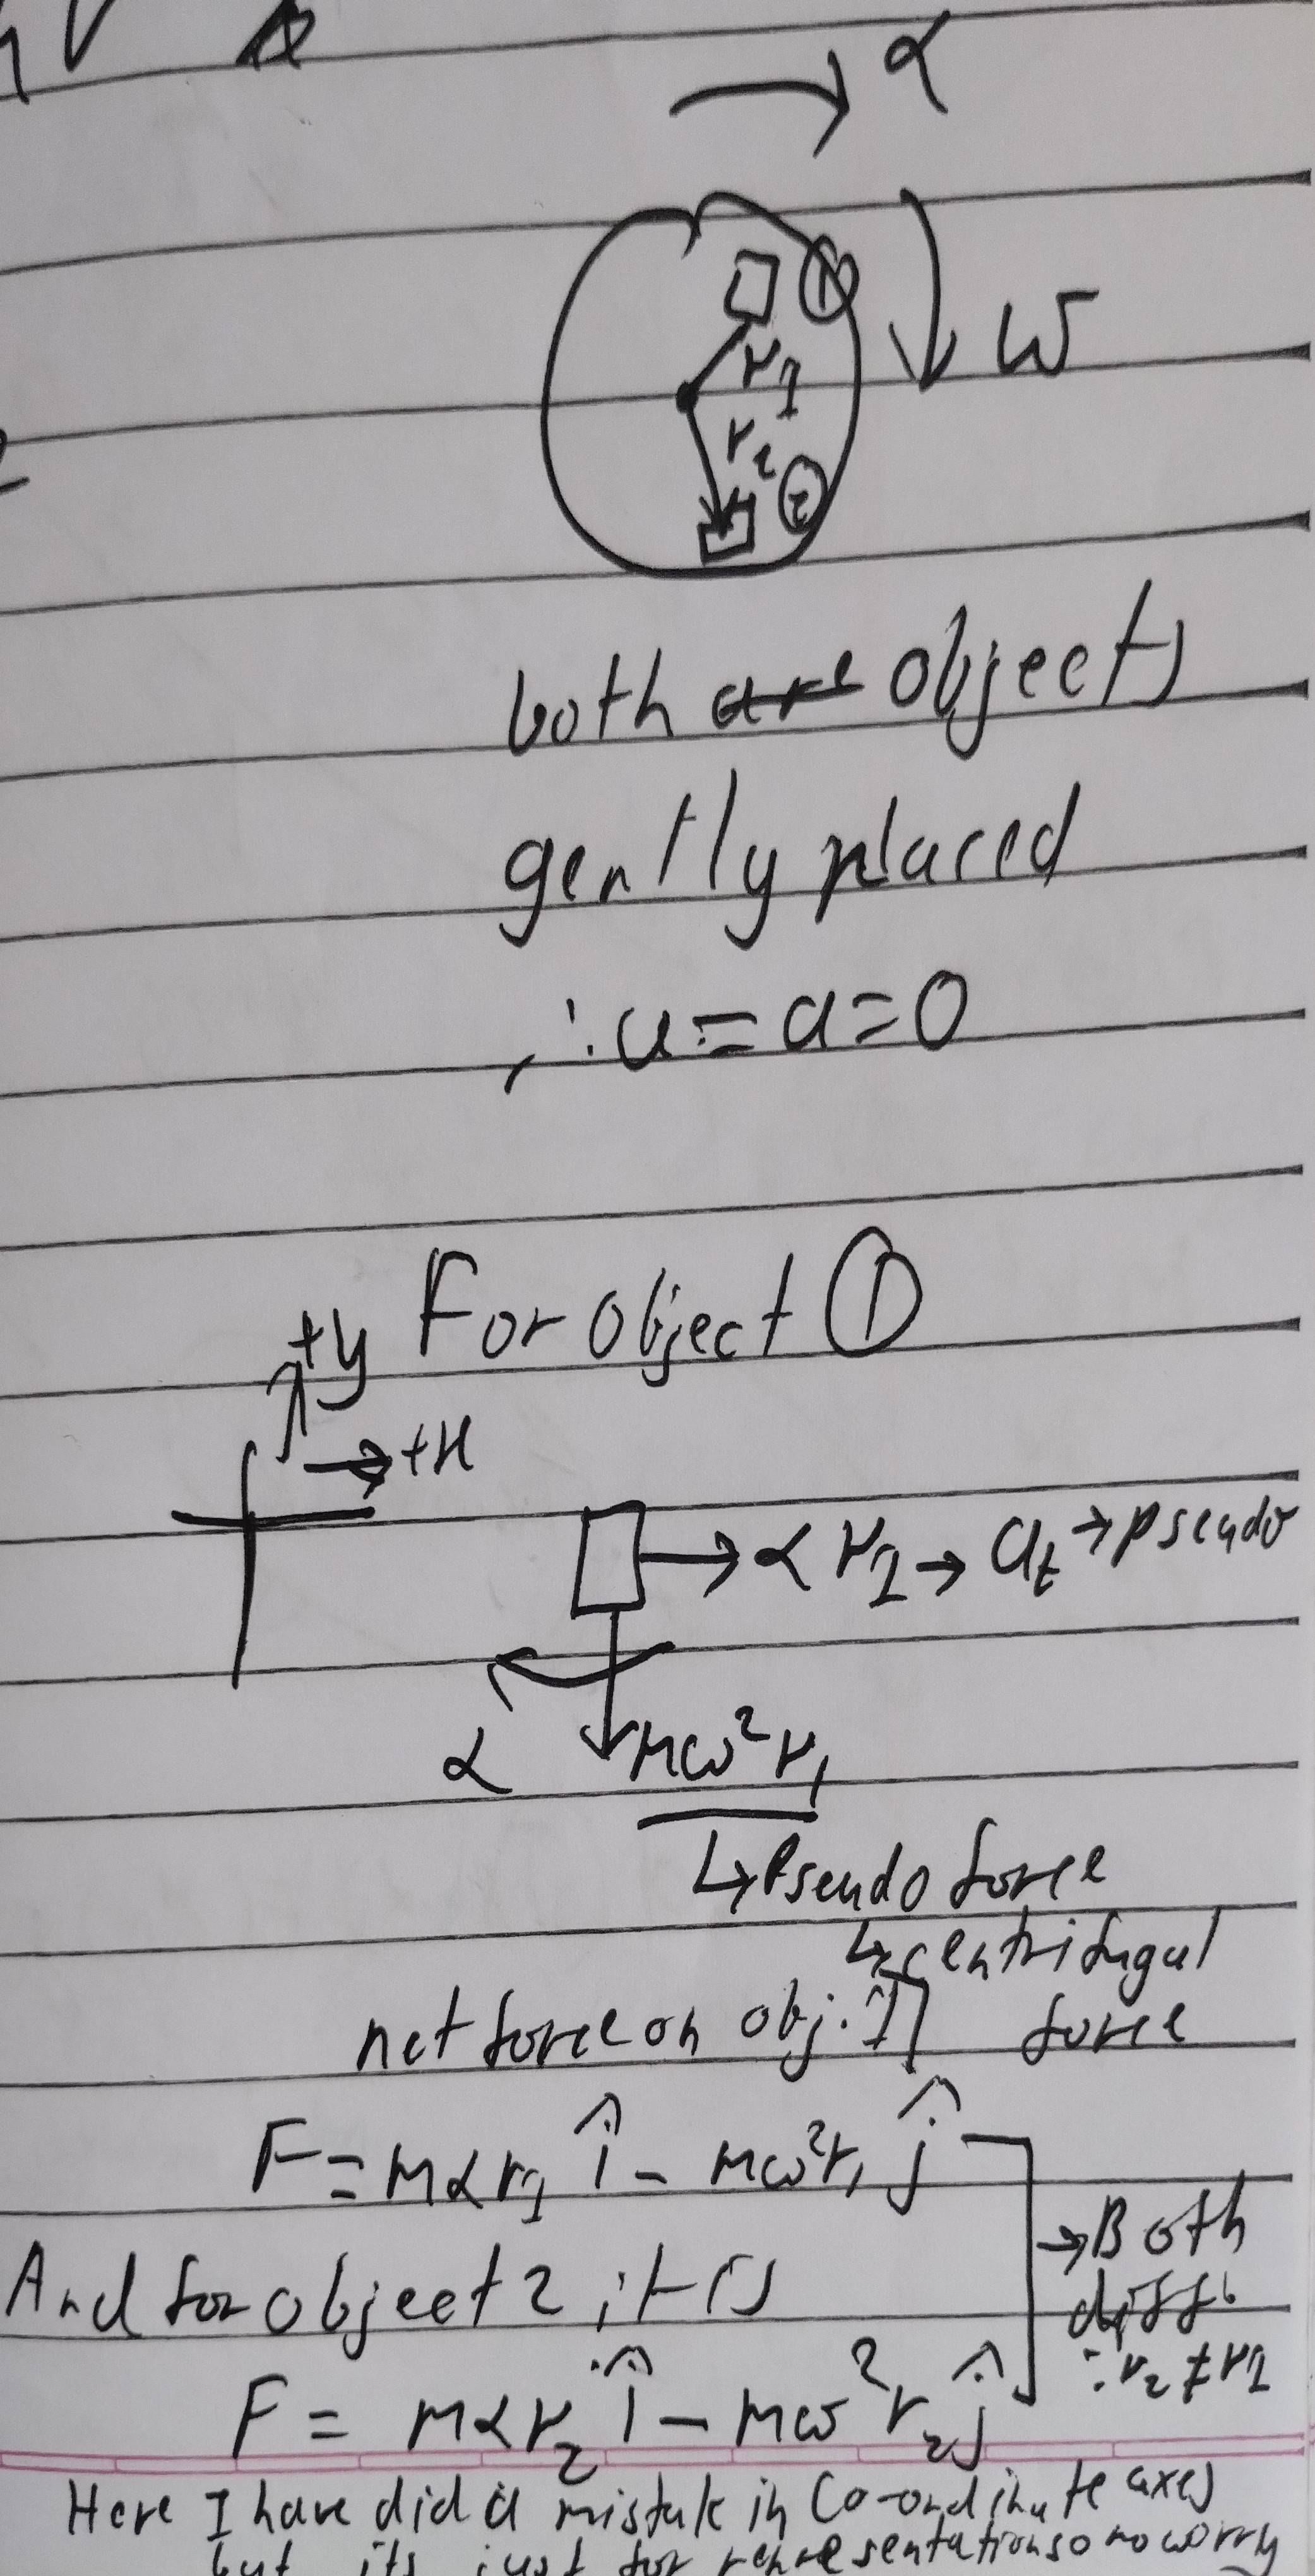 α
ω
①
r₁
r₂
②
both are objects
gently placed
∴ u = a = 0
For object ①
+y
→ +x
→ α r₁ → aₜ → pseudo
α
mω²r₁
↳ Pseudo force
↳ centrifugal
force
net force on obj. 1
F = mαr₁ î - mω²r₁ ĵ
→ Both
diff.
∵ r₂ ≠ r₁
And for object 2 it is
F = mαr₂ î - mω²r₂ ĵ
Here I have did a mistak in Co-ordinate axes
but its just for representation so no worry